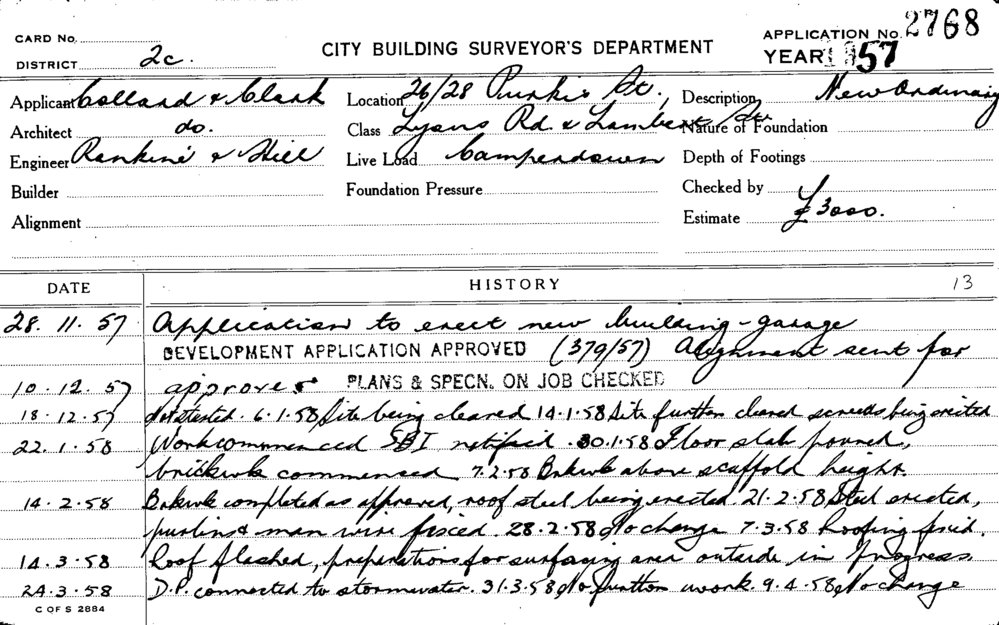 CARD No.
DISTRICT 2c.
CITY BUILDING SURVEYOR'S DEPARTMENT
APPLICATION No. 2768
YEAR 1957
Applicant Colland & Clark
Location 26/28 Purkis St.,
Description New Ordinary
Architect do.
Class Lyons Rd. & Lambert St
Nature of Foundation
Engineer Rankine & Hill
Live Load Camperdown
Depth of Footings
Builder
Foundation Pressure
Checked by
Alignment
Estimate £3000.
DATE
HISTORY
13
28. 11. 57 Application to erect new building - garage
DEVELOPMENT APPLICATION APPROVED (379/57) Alignment sent for
10. 12. 57 approver PLANS & SPECN. ON JOB CHECKED
18. 12. 57 Not started. 6.1.58 Site being cleared 14.1.58 Site further cleared screeds being erected
22. 1. 58 Work commenced SBI notified. 30.1.58 Floor slab poured,
brickwk commenced 7.2.58 Brkwk above scaffold height.
14. 2. 58 Brkwk completed as approved, roof steel being erected. 21.2.58 Steel erected,
purlins & man wire fixed. 28.2.58 No change 7.3.58 Roofing fixed.
14. 3. 58 Roof flashed, preparations for surfacing area outside in progress.
24. 3. 58 D.P. connected to stormwater. 31.3.58 No further work 9.4.58 No change
C OF S 2884